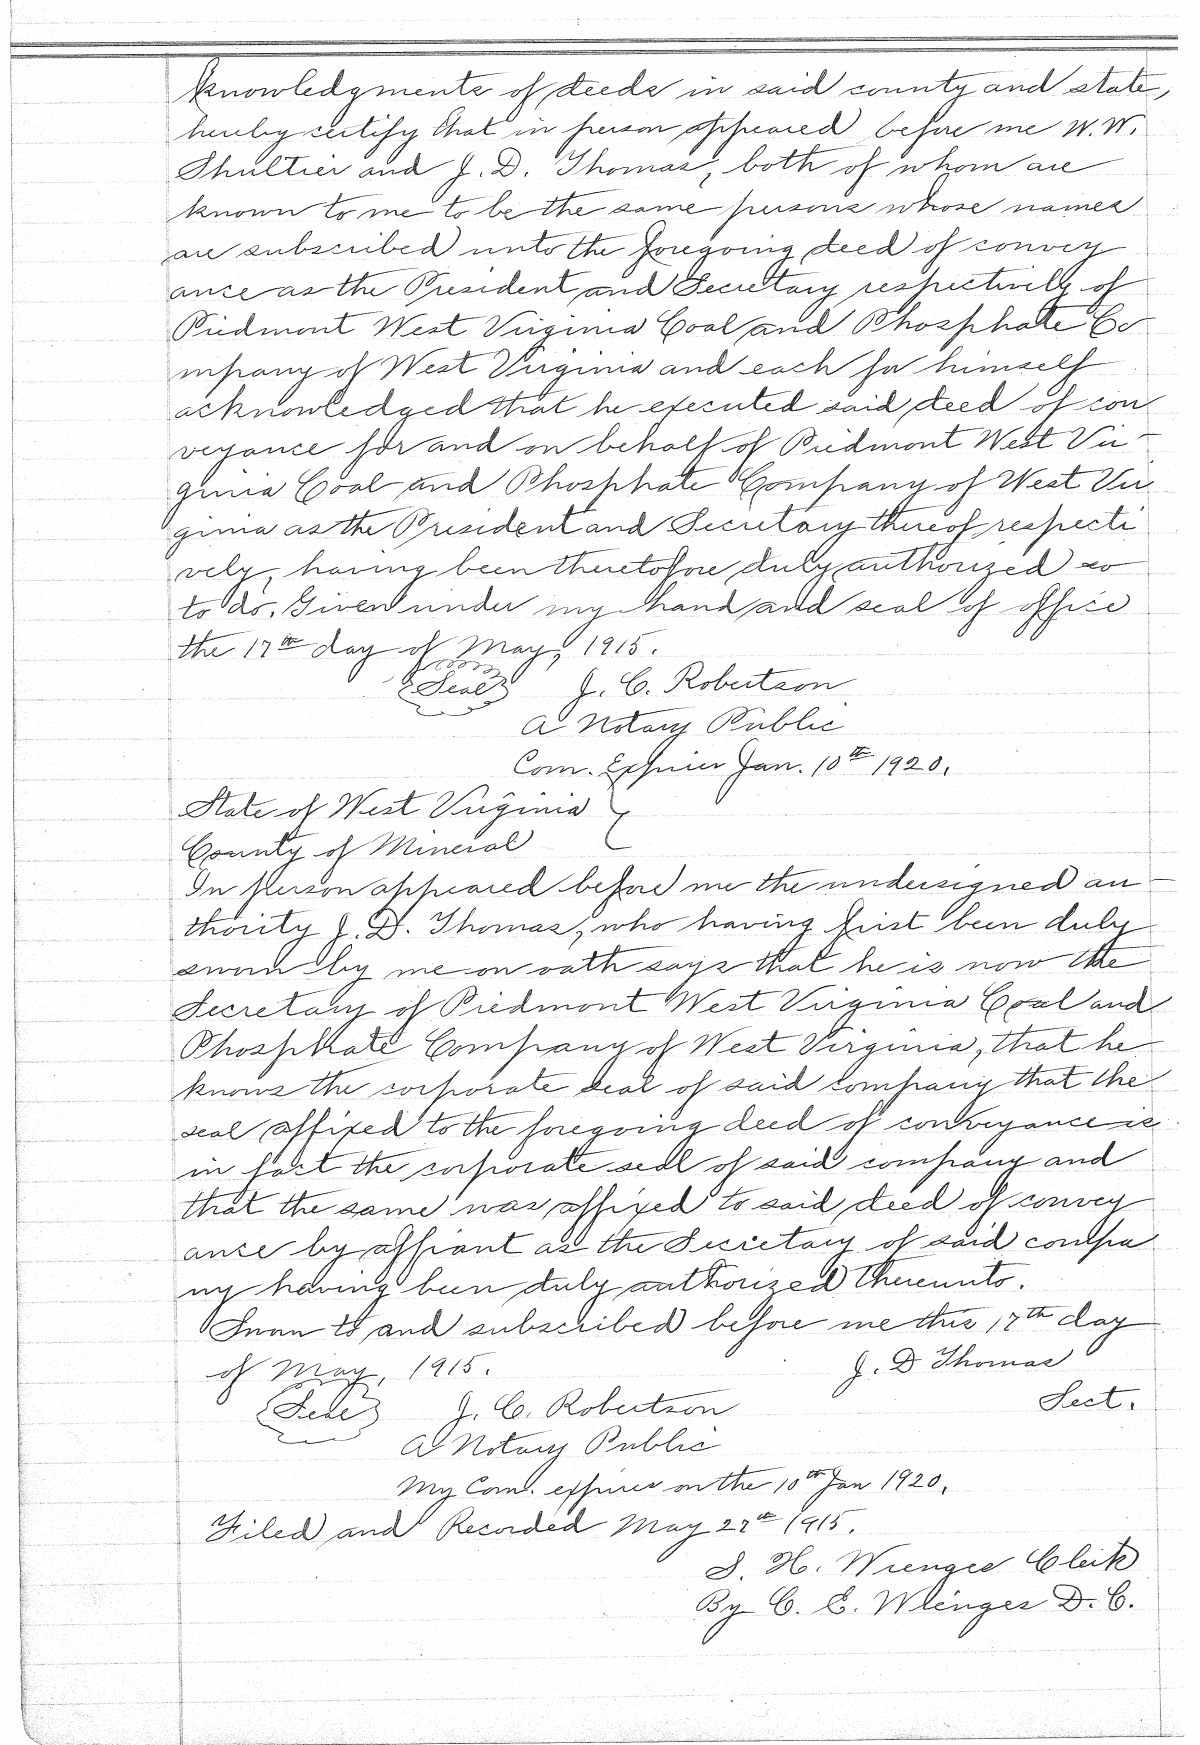 knowledgments of deeds in said county and state,
hereby certify that in person appeared before me W.W.
Shultier and J. D. Thomas, both of whom are
known to me to be the same persons whose names
are subscribed unto the foregoing deed of convey
ance as the President and Secretary respectively of
Piedmont West Virginia Coal and Phosphate Co
mpany of West Virginia and each for himself
acknowledged that he executed said deed of con
veyance for and on behalf of Piedmont West Vir-
ginia Coal and Phosphate Company of West Vir
ginia as the President and Secretary thereof respecti
vely, having been theretofore duly authorized so
to do. Given under my hand and seal of office
the 17th day of May, 1915.
Seal J. C. Robertson
A Notary Public
Com. Expires Jan. 10th 1920.
State of West Virginia
County of Mineral
In person appeared before me the undersigned au-
thority J. D. Thomas, who having first been duly
sworn by me on oath says that he is now the
Secretary of Piedmont West Virginia Coal and
Phosphate Company of West Virginia, that he
knows the corporate seal of said company that the
seal affixed to the foregoing deed of conveyance is
in fact the corporate seal of said company and
that the same was affixed to said deed of convey
ance by affiant as the Secretary of said compa
ny having been duly authorized thereunto.
Swan to and subscribed before me this 17th day
of May, 1915. J. D Thomas
Sect.
Seal J. C. Robertson
A Notary Public
My Com. expires on the 10th Jan 1920.
Filed and Recorded May 27th 1915.
J. H. Clerk
By C. E. D. C.